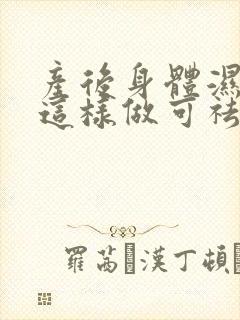 產後身體濕
這樣做可祛
羅茜 漢丁頓